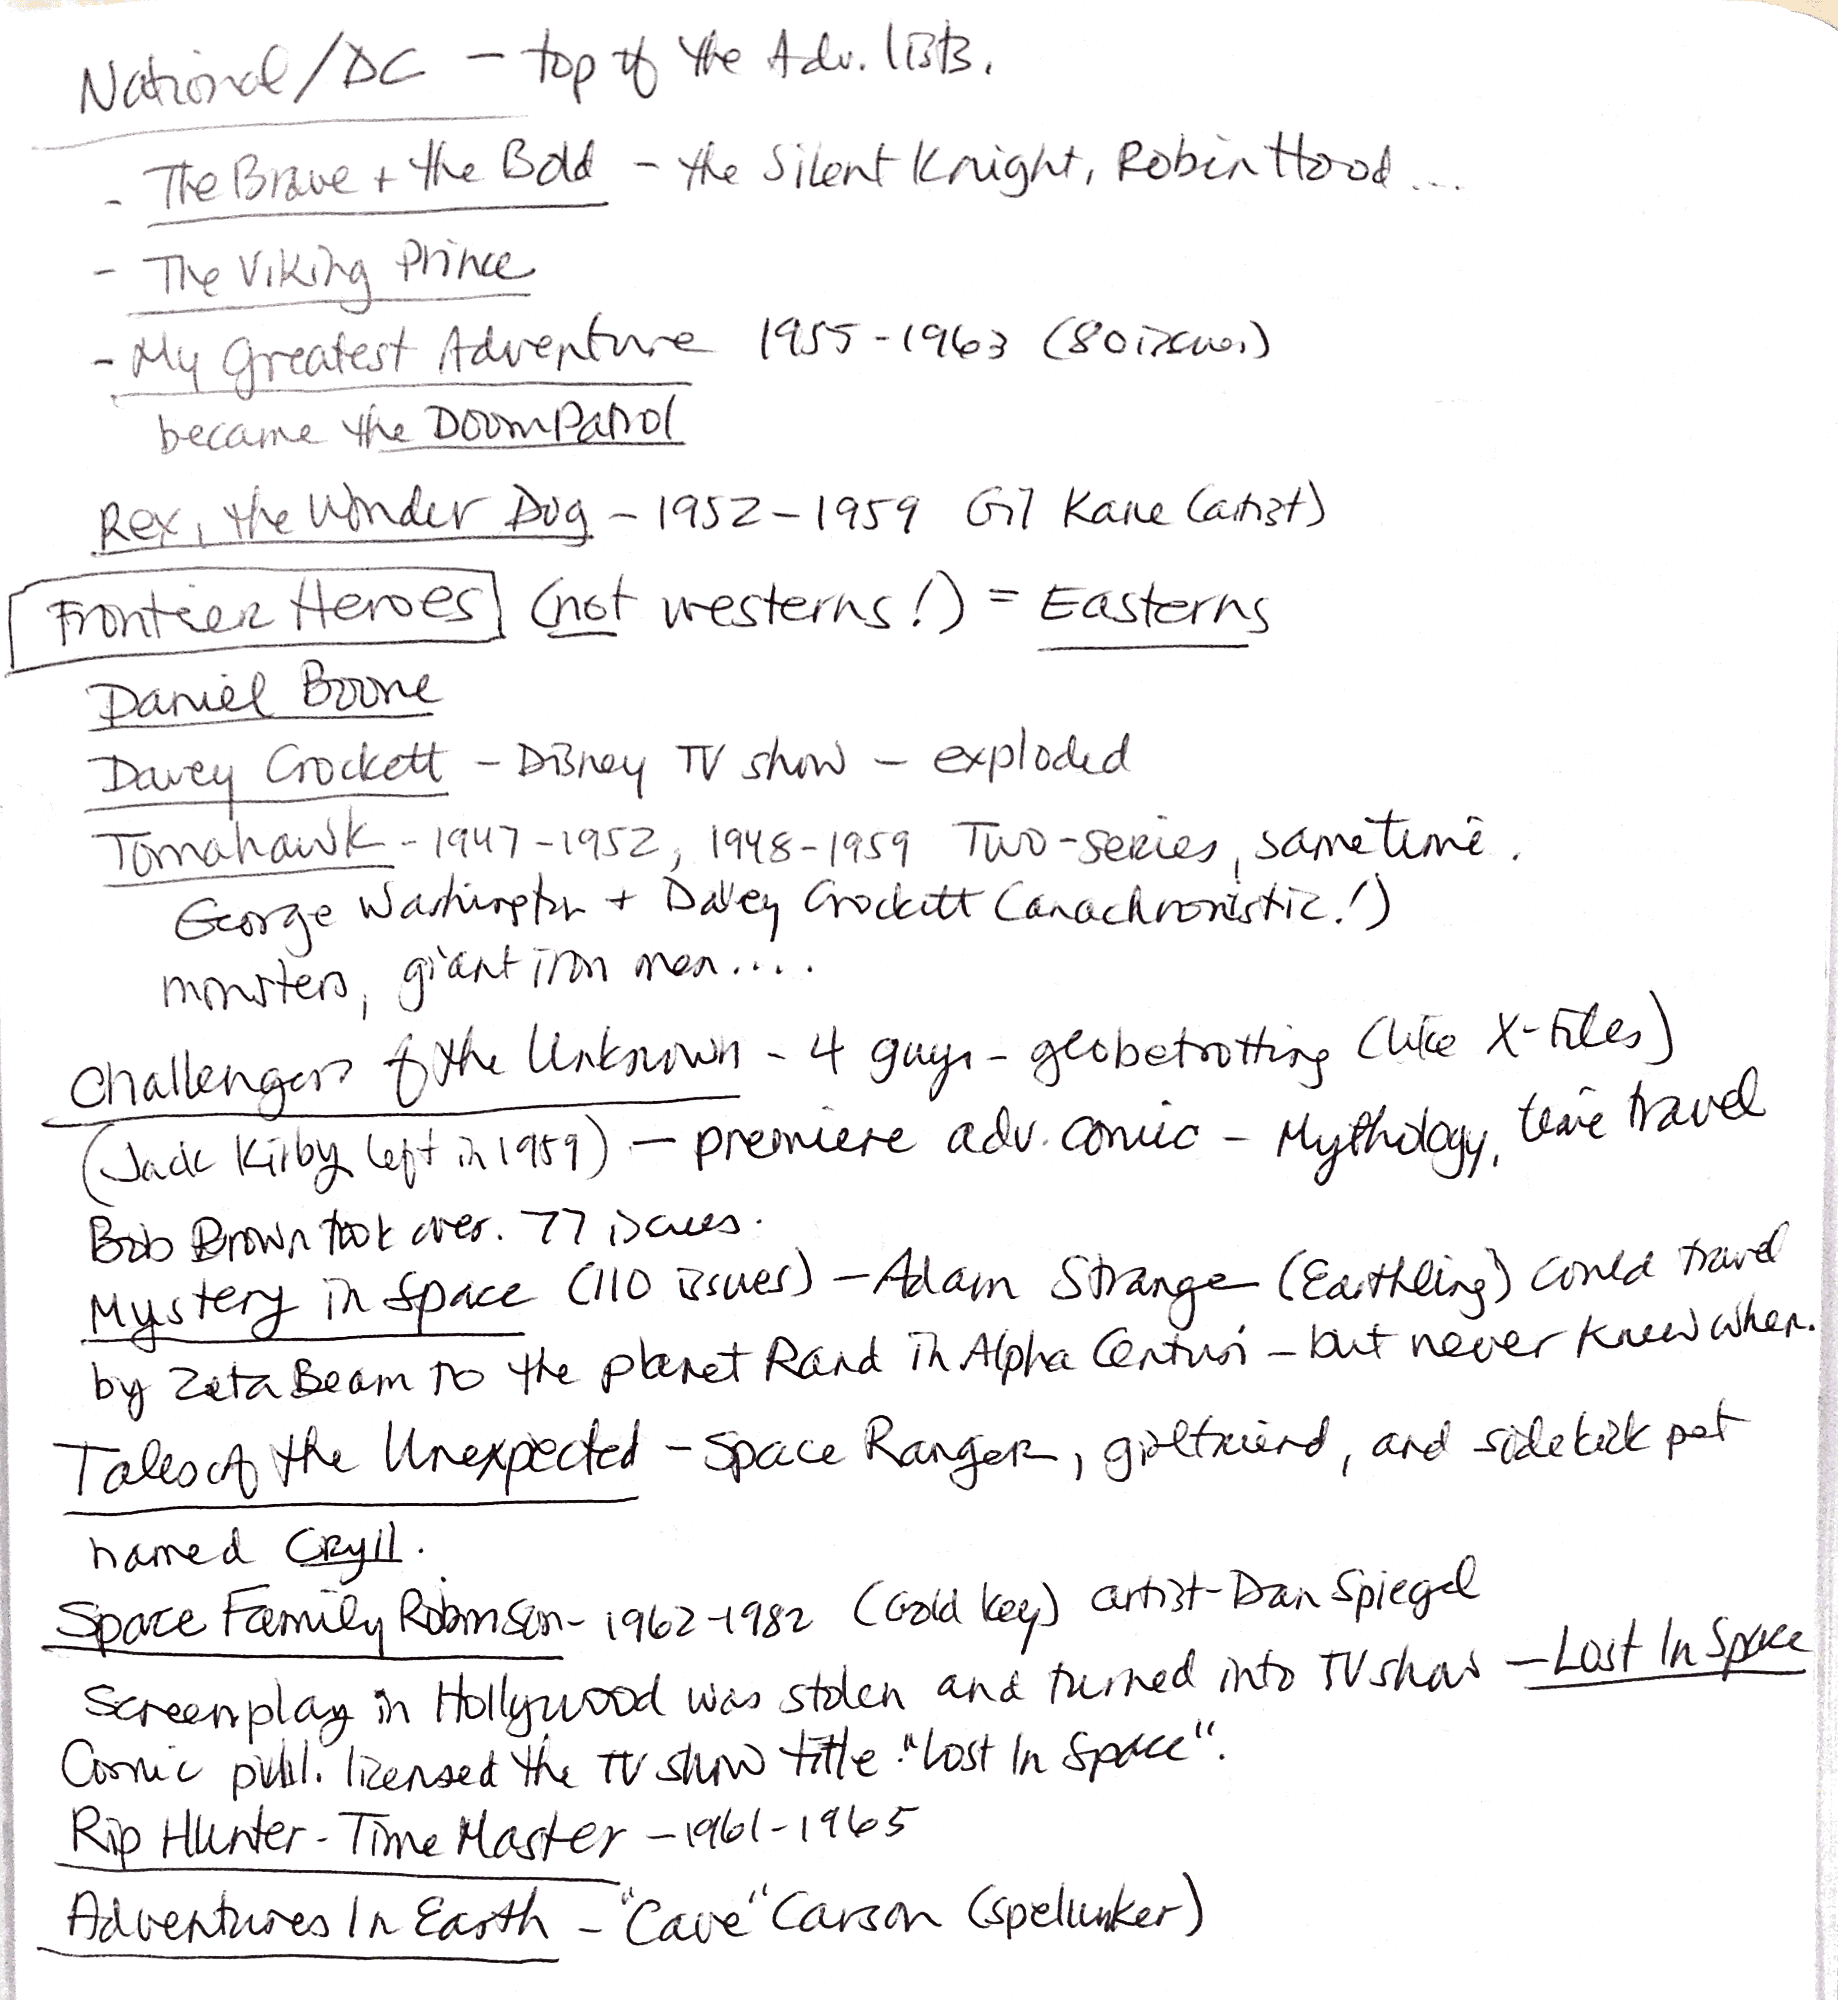 National/DC – top of the Adv. lists.
- The Brave + the Bold – the Silent Knight, Robin Hood ...
- The Viking Prince
- My Greatest Adventure 1955-1963 (80 issues)
became the Doom Patrol
Rex, the Wonder Dog – 1952-1959 Gil Kane (artist)
Frontier Heroes (not westerns!) = Easterns
Daniel Boone
Davey Crockett – Disney TV show – exploded
Tomahawk - 1947-1952, 1948-1959 Two-series, same time.
George Washington + Davey Crockett (anachronistic!)
monsters, giant iron men....
Challengers of the Unknown - 4 guys - globetrotting (like X-Files)
(Jack Kirby left in 1959) – premiere adv. comic – Mythology, time travel
Bob Brown took over. 77 issues.
Mystery in Space (110 issues) – Adam Strange (Earthling) could travel
by Zeta Beam to the planet Rand in Alpha Centuri – but never knew when.
Tales of the Unexpected – Space Ranger, girlfriend, and sidekick pet
named Cryll.
Space Family Robinson - 1962-1982 (Gold Key) artist-Dan Spiegel
Screenplay in Hollywood was stolen and turned into TV show – Lost In Space
Comic publ. licensed the TV show title "Lost In Space".
Rip Hunter - Time Master – 1961-1965
Adventures In Earth – "Cave" Carson (spelunker)